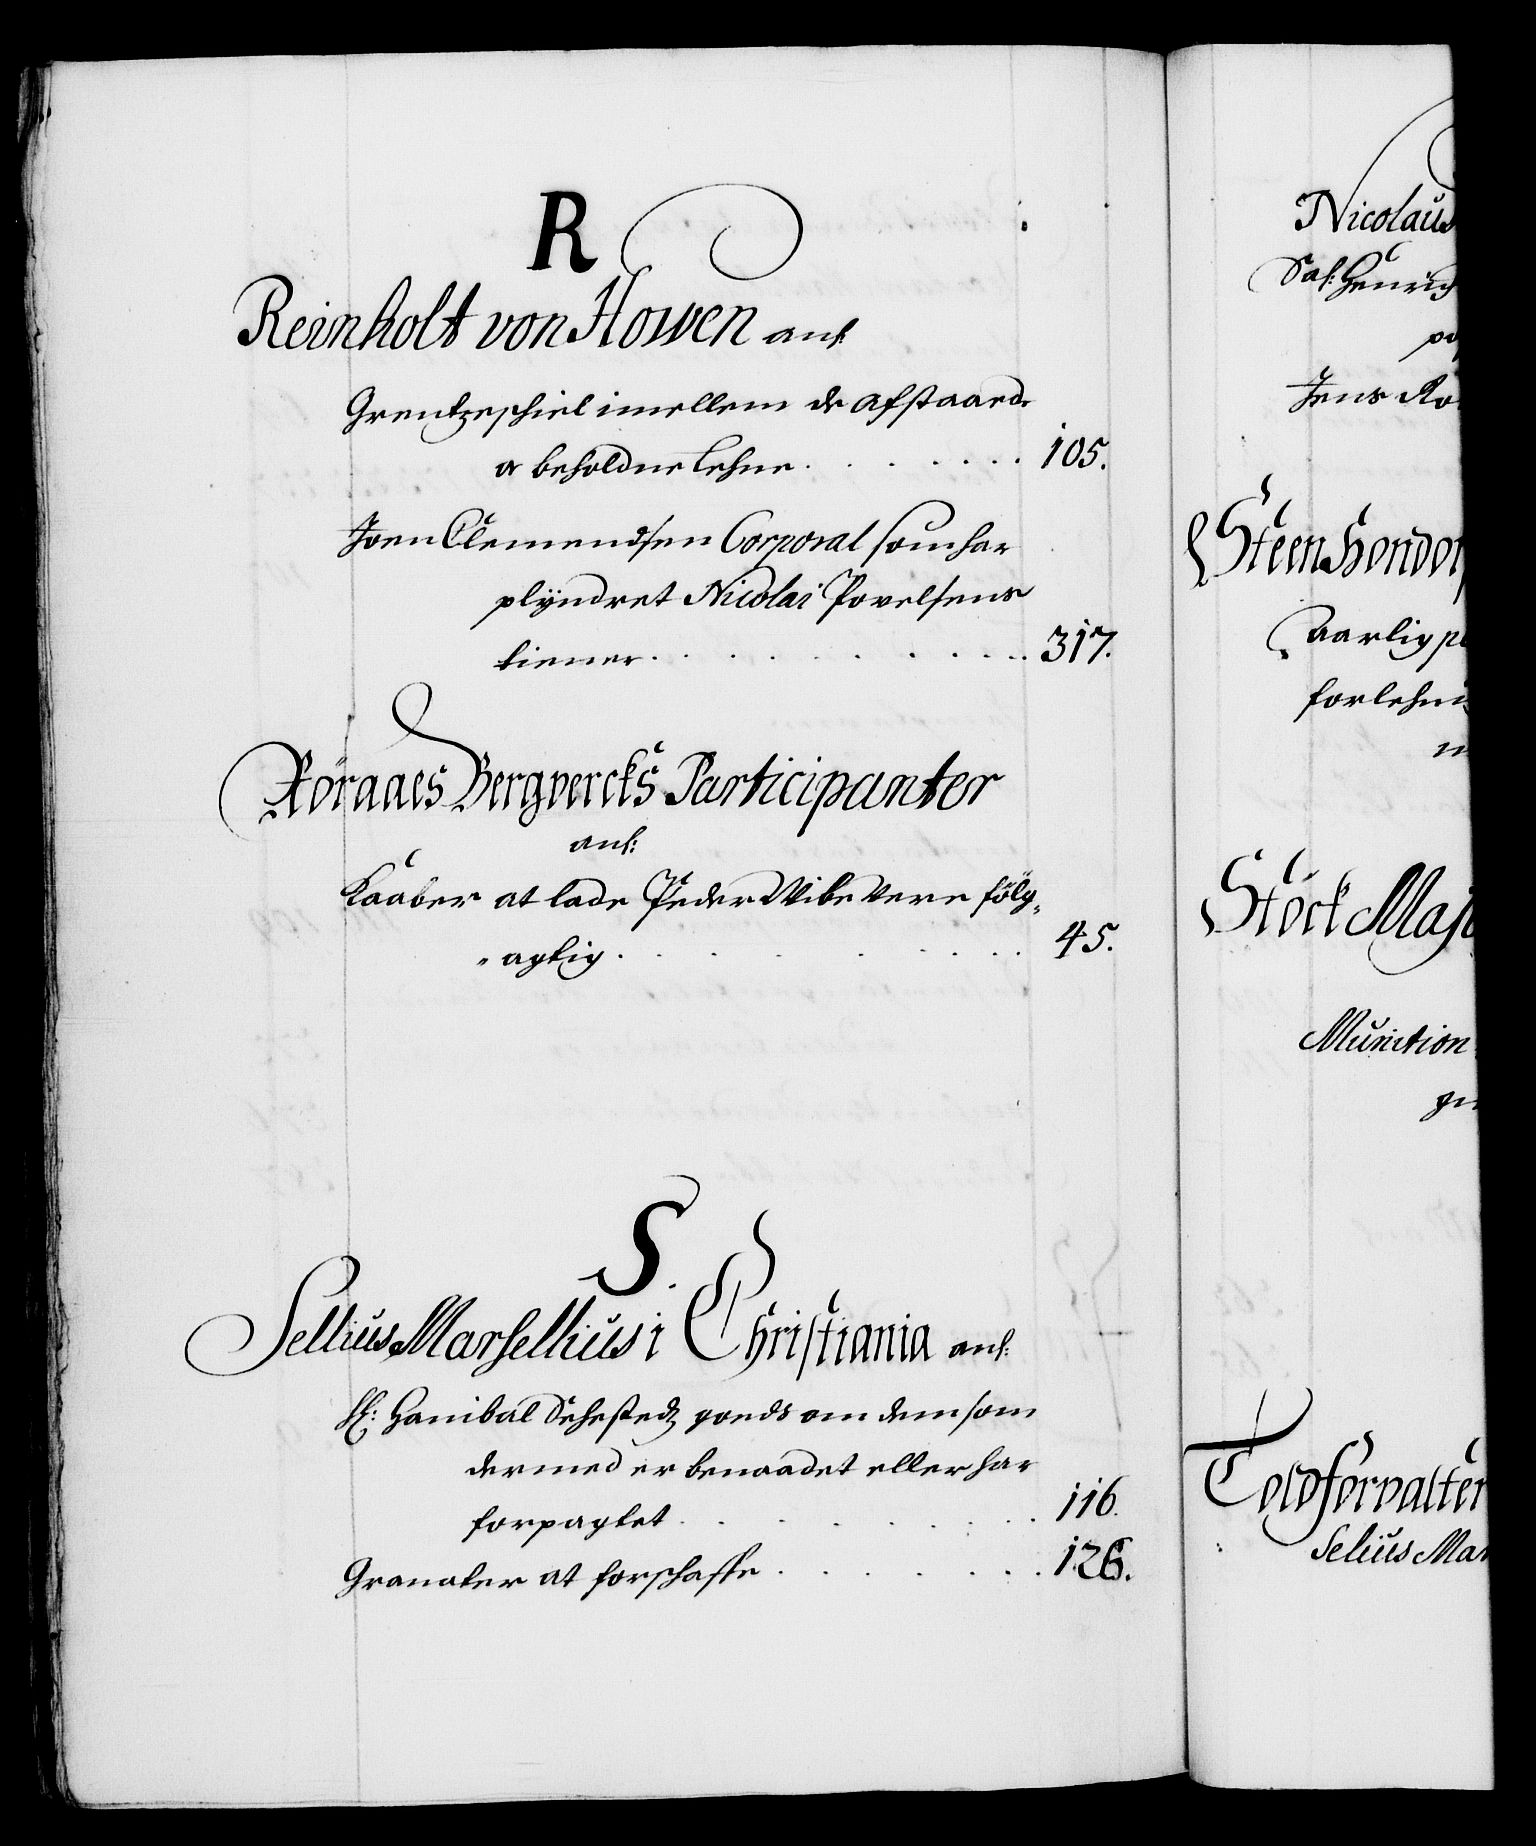 R
Reinholt von Howen anl:
Grentzeschiel imellem de afstaaede
oc beholdne Lehne. 105.
Joen Clemendsen Corporal som har
plÿndret Nicolai Povelsens
tiener. 317.
Röraaes Bergvercks Participanter
anl:
Kaaber at lade Peder Vibe vere fölg-
-agtig. 45.
S.
Sellius Marsellius i Christiania anl:
H: Hanibal Sehestedz goeds om dem som
dermed er benaadet eller har
forpagtet. 116.
Granater at forschaffe. 126.
Nicolaus
Sal: Henrich
Jens Ro
Steen Hondor
Aarlig pe
forlehni
Stöck Majo
Munition
Toldforvalter
Selius Mar